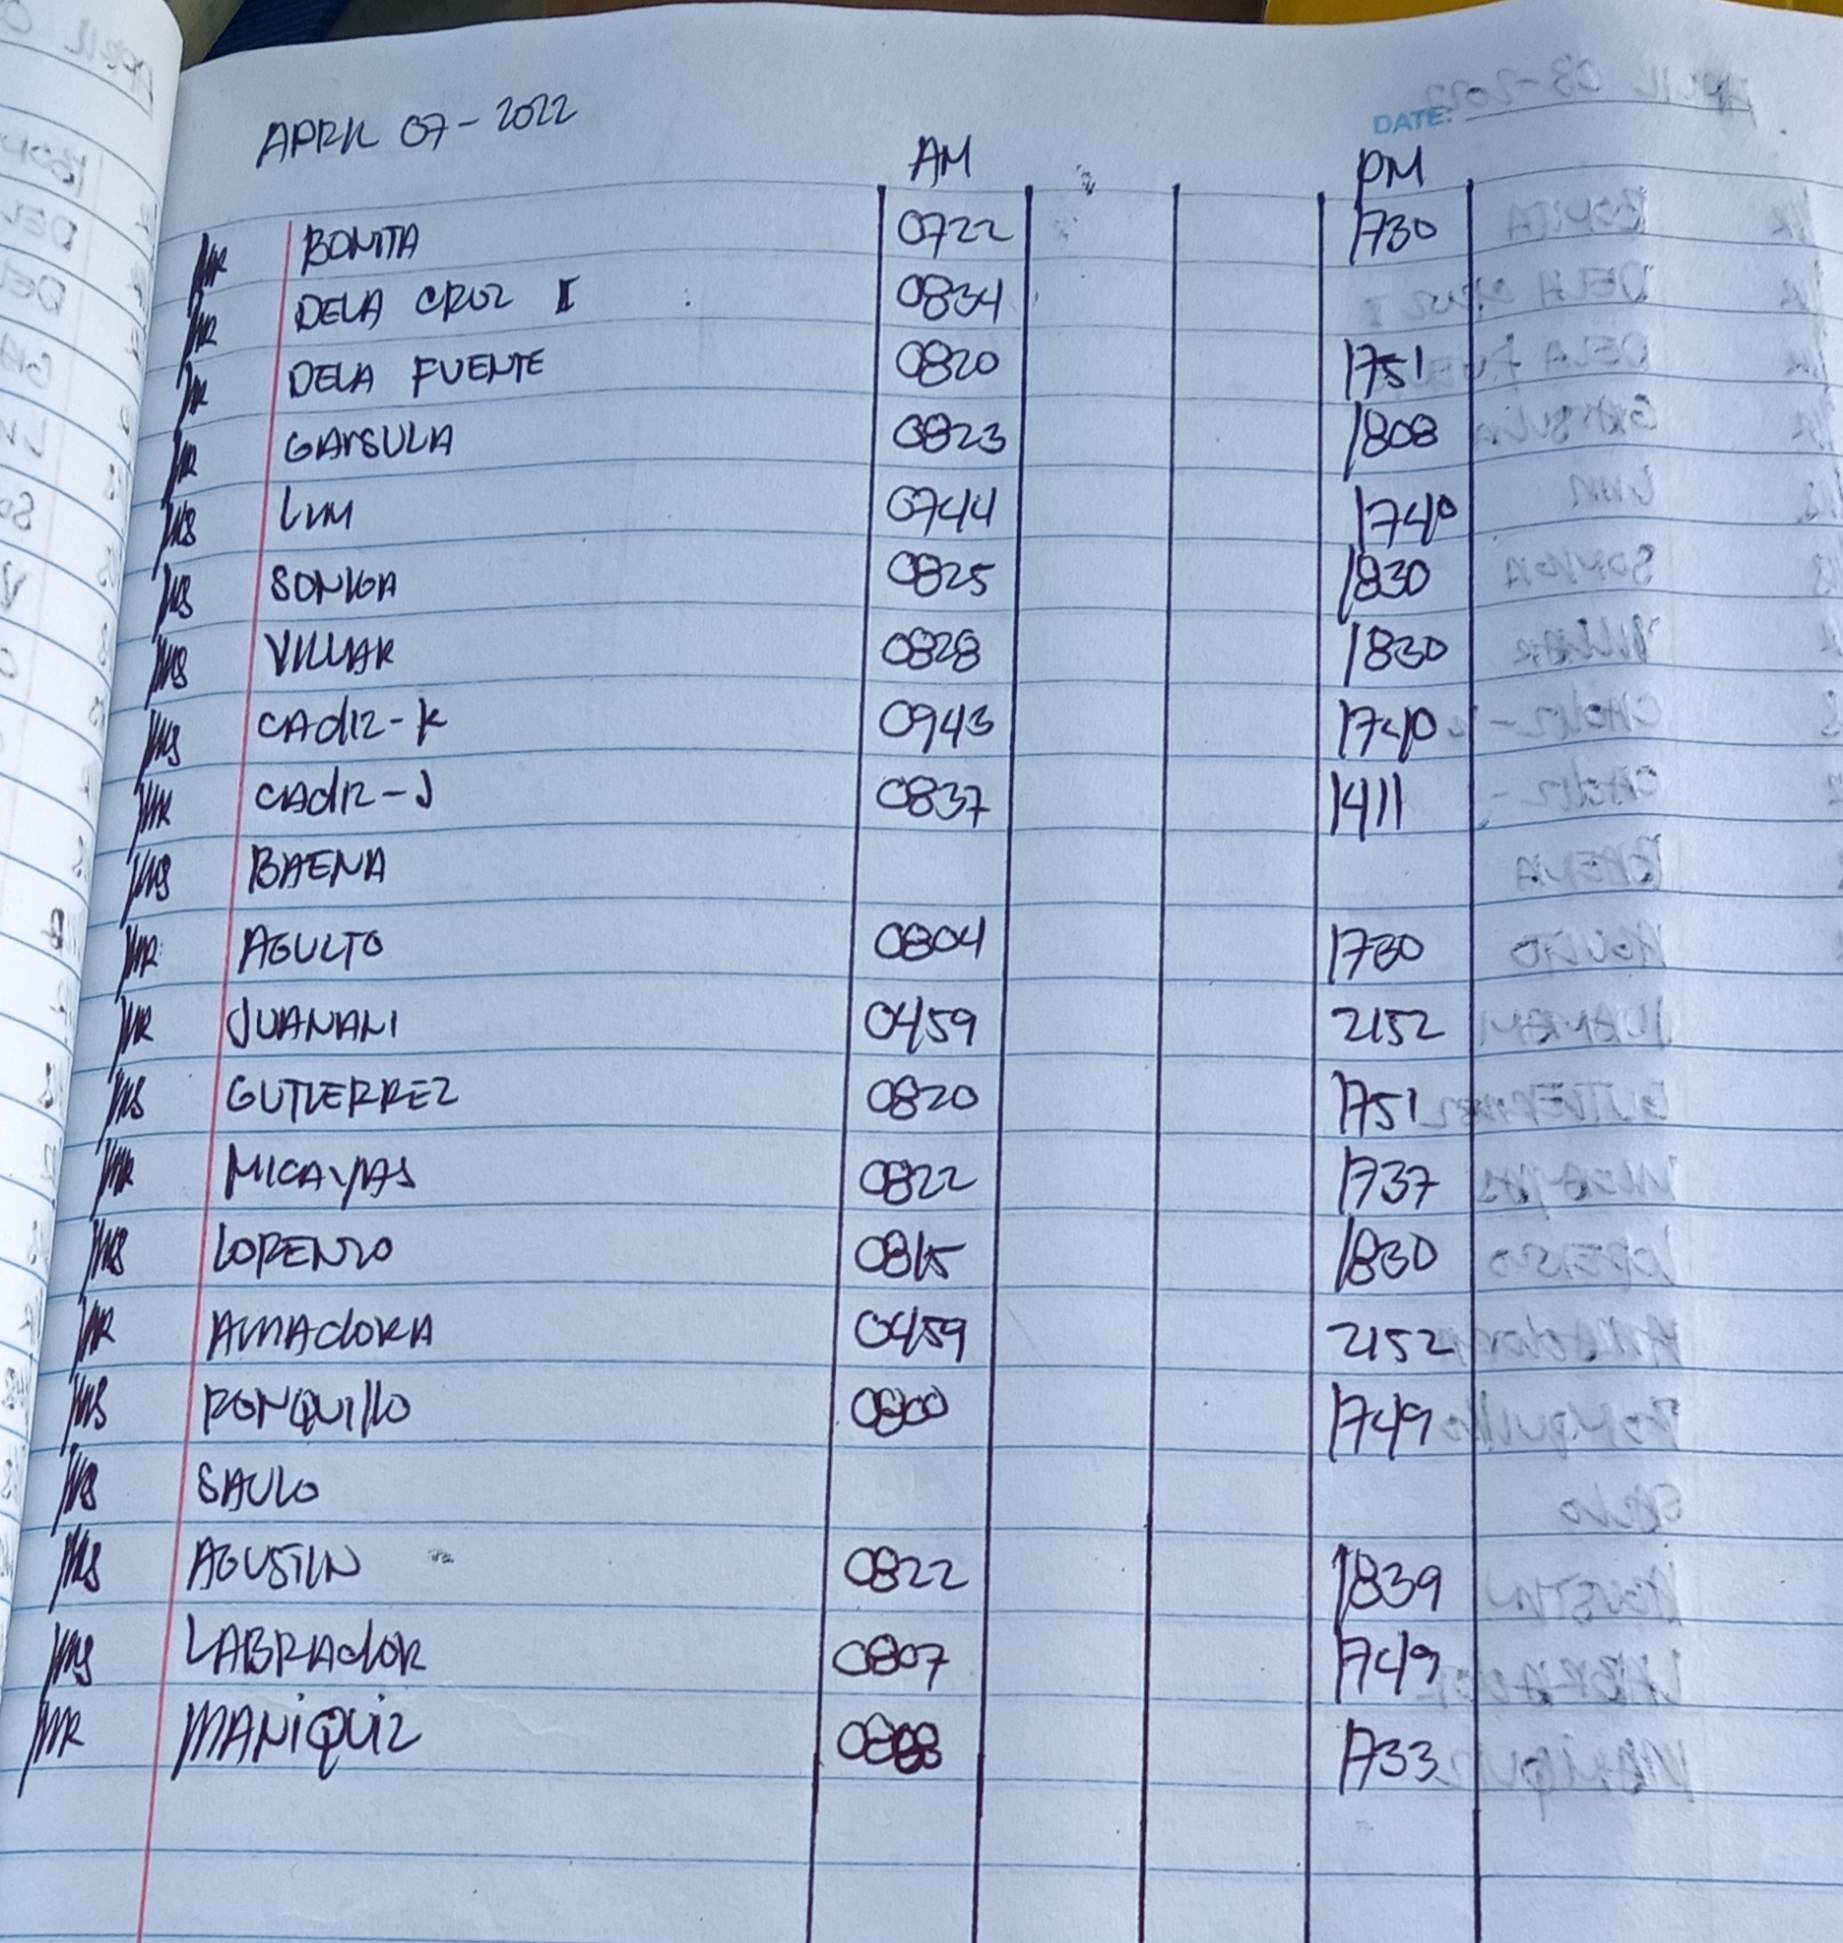 APRIL 07-2022
DATE:
AM PM
MR BONITA 0722 1730
MR DELA CRUZ II 0834
MR DELA FUENTE 0820 1751
MR GAYSULA 0823 1808
MS LIM 0744 1740
MS SONIGA 0825 1830
MS VILLAR 0828 1830
MS CADIZ-K 0943 1740
MR CADIZ-J 0837 1411
MS BAENA
MR AGULTO 0804 1730
MR JUANANI 0459 2152
MS GUTIERREZ 0820 1751
MR MICAYAS 0822 1737
MS LORENZO 0815 1830
MR AMADORA 0459 2152
MS RONQUILLO 0800 1749
MS SAULO
MS AGUSTIN 0822 1839
MS LABRADOR 0807 1749
MR MANIQUIZ 1733